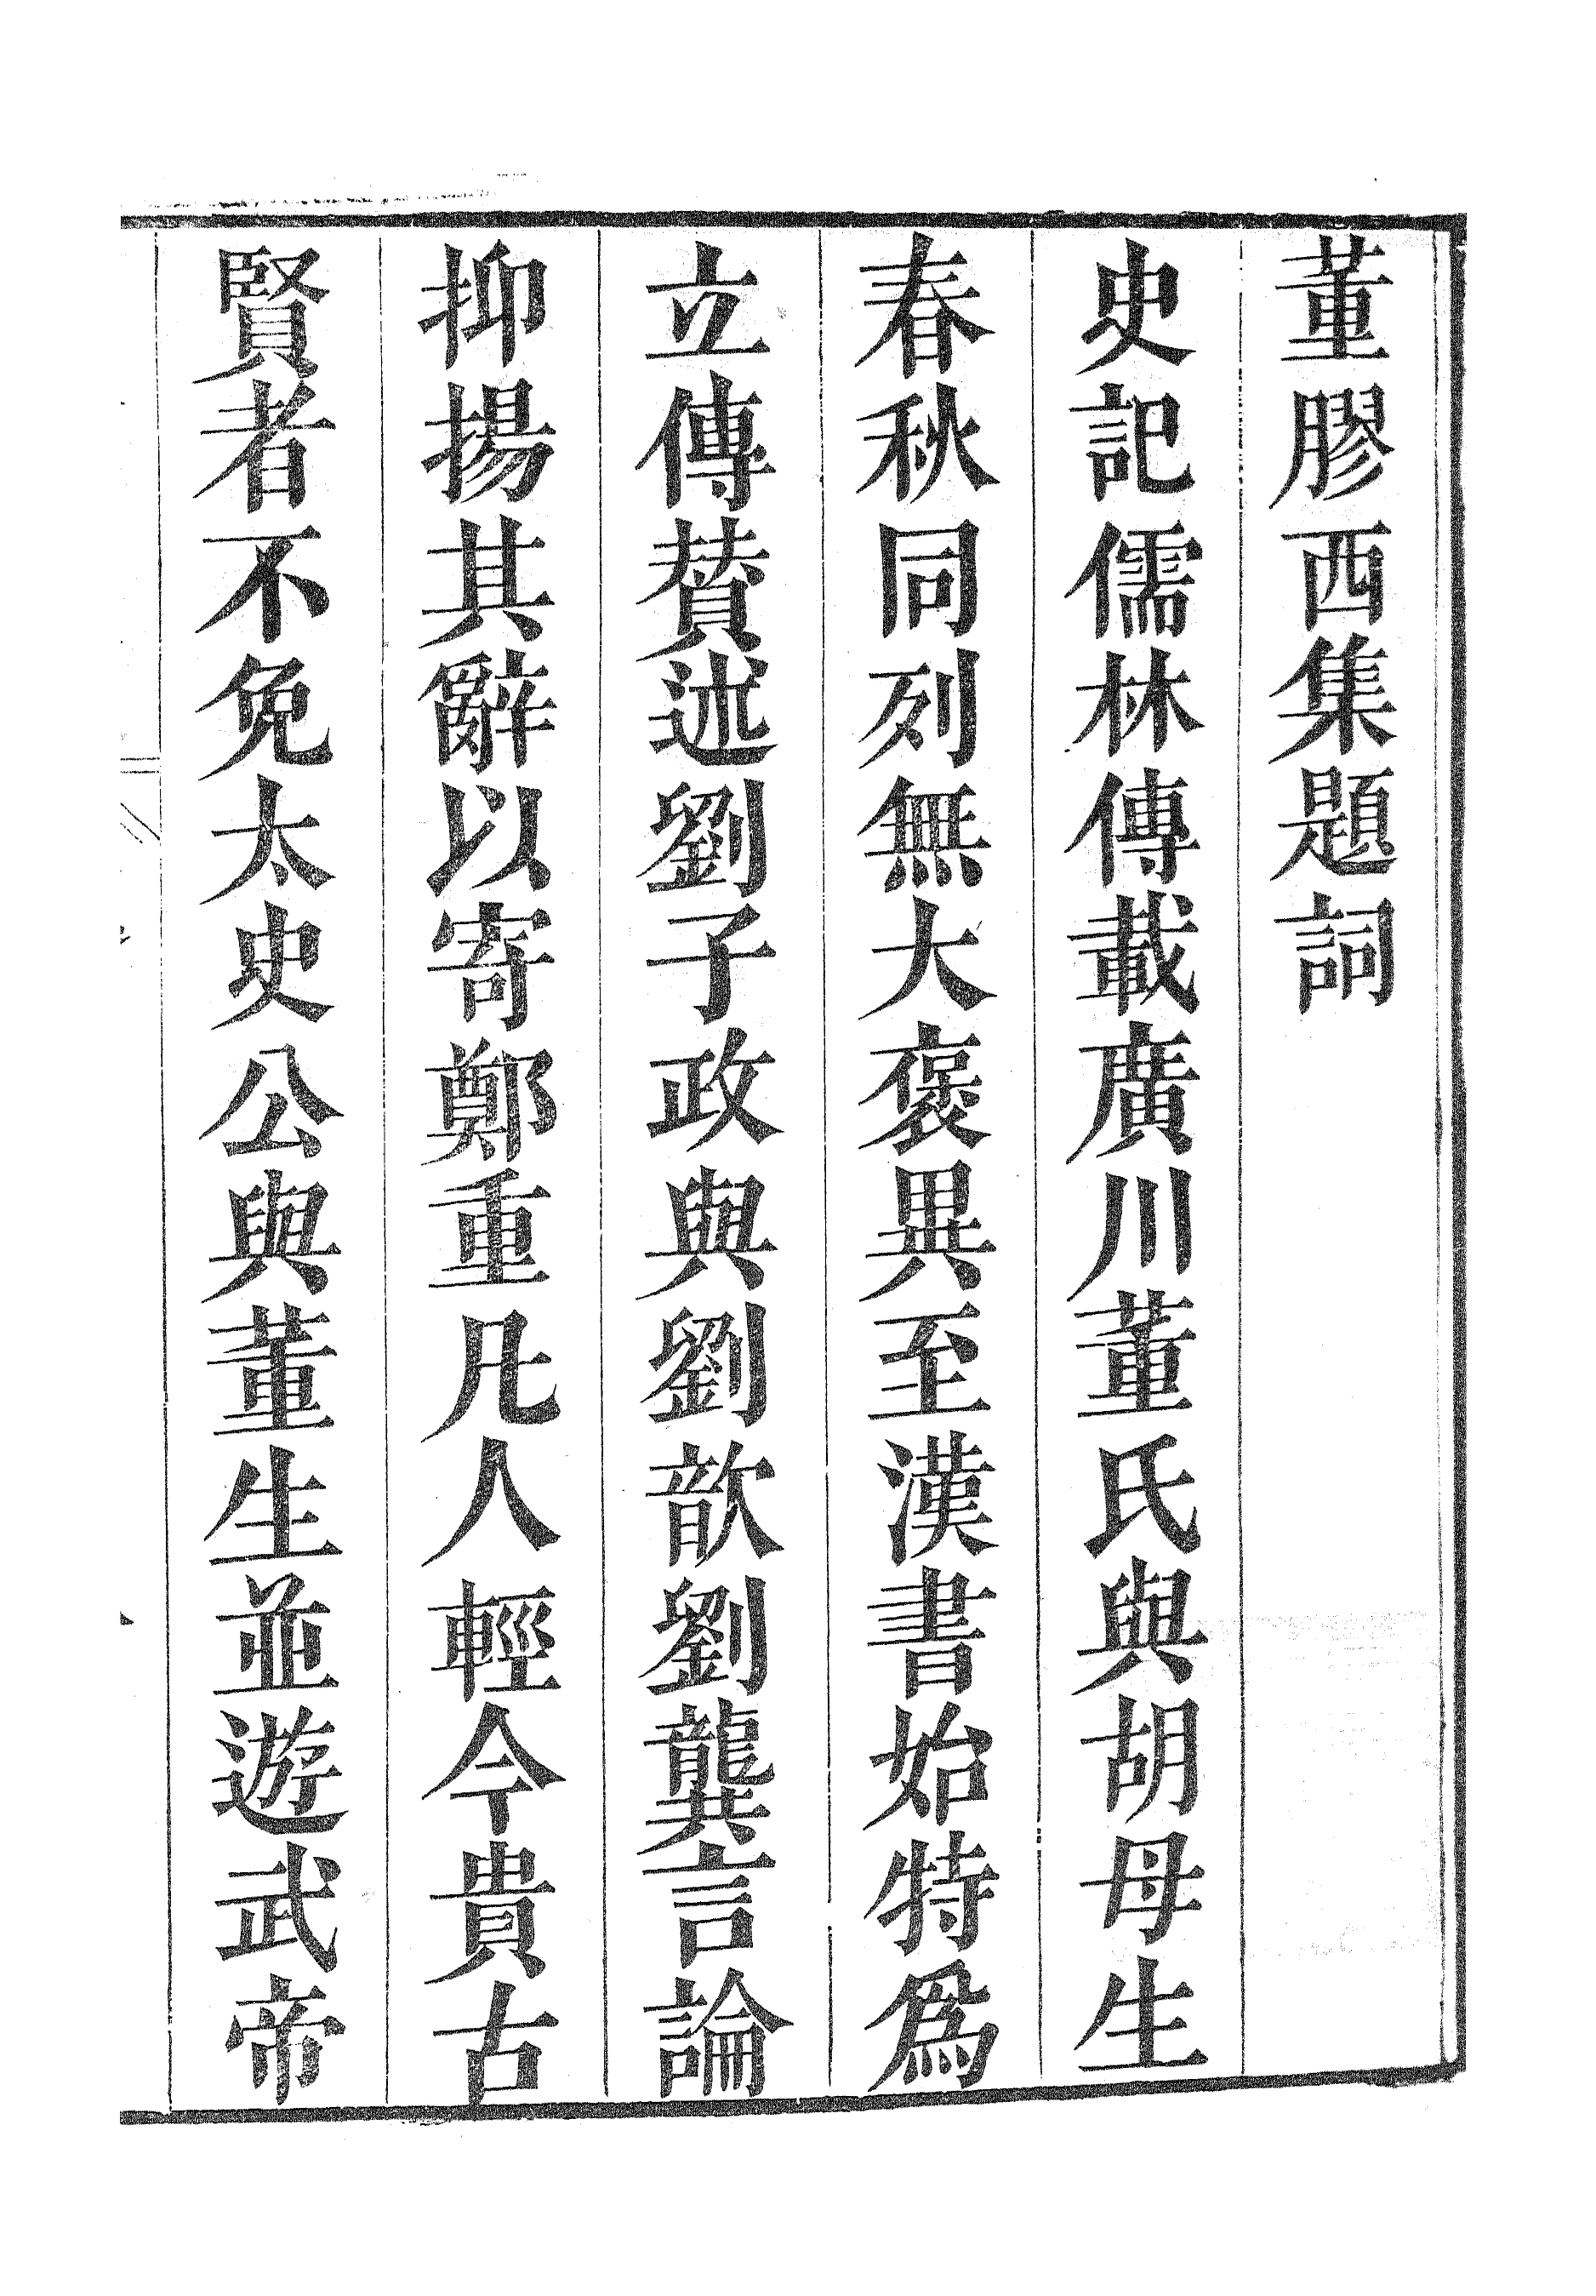 董膠西集題詞
史記儒林傳載廣川董氏與胡母生
春秋同列無大褒異至漢書始特爲
立傳賛述劉子政與劉歆劉龔言論
抑揚其辭以寄鄭重凡人輕今貴古
賢者不免太史公與董生並遊武帝